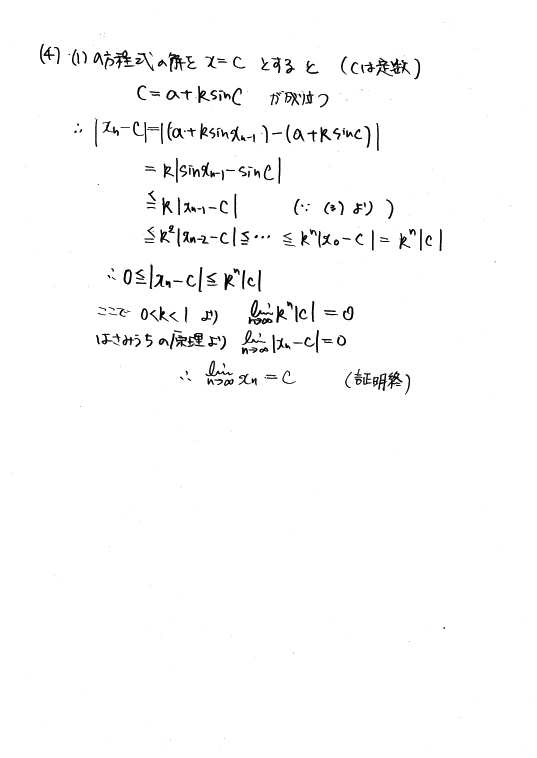 (4) (1)の方程式の解を x=C とすると (Cは定数)
C=a+ksinC が成り立つ
∴ |xn-C|=|(a+ksinxn-1)-(a+ksinC)|
=k|sinxn-1-sinC|
≦k|xn-1-C| (∵ (3)より)
≦k²|xn-2-C|≦… ≦kⁿ|x0-C|=kⁿ|C|
∴ 0≦|xn-C|≦kⁿ|C|
ここで 0<k<1 より lim n→∞ kⁿ|C|=0
はさみうちの原理より lim n→∞ |xn-C|=0
∴ lim n→∞ xn=C (証明終)